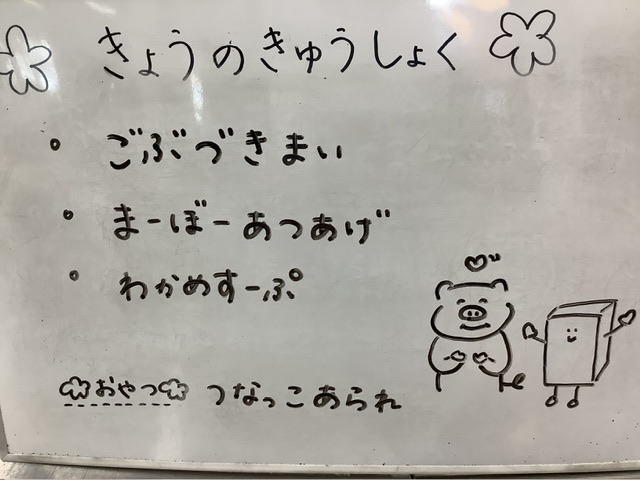 きょうのきゅうしょく
・ごぶづきまい
・まーぼーあつあげ
・わかめすーぷ
おやつ つなっこあられ